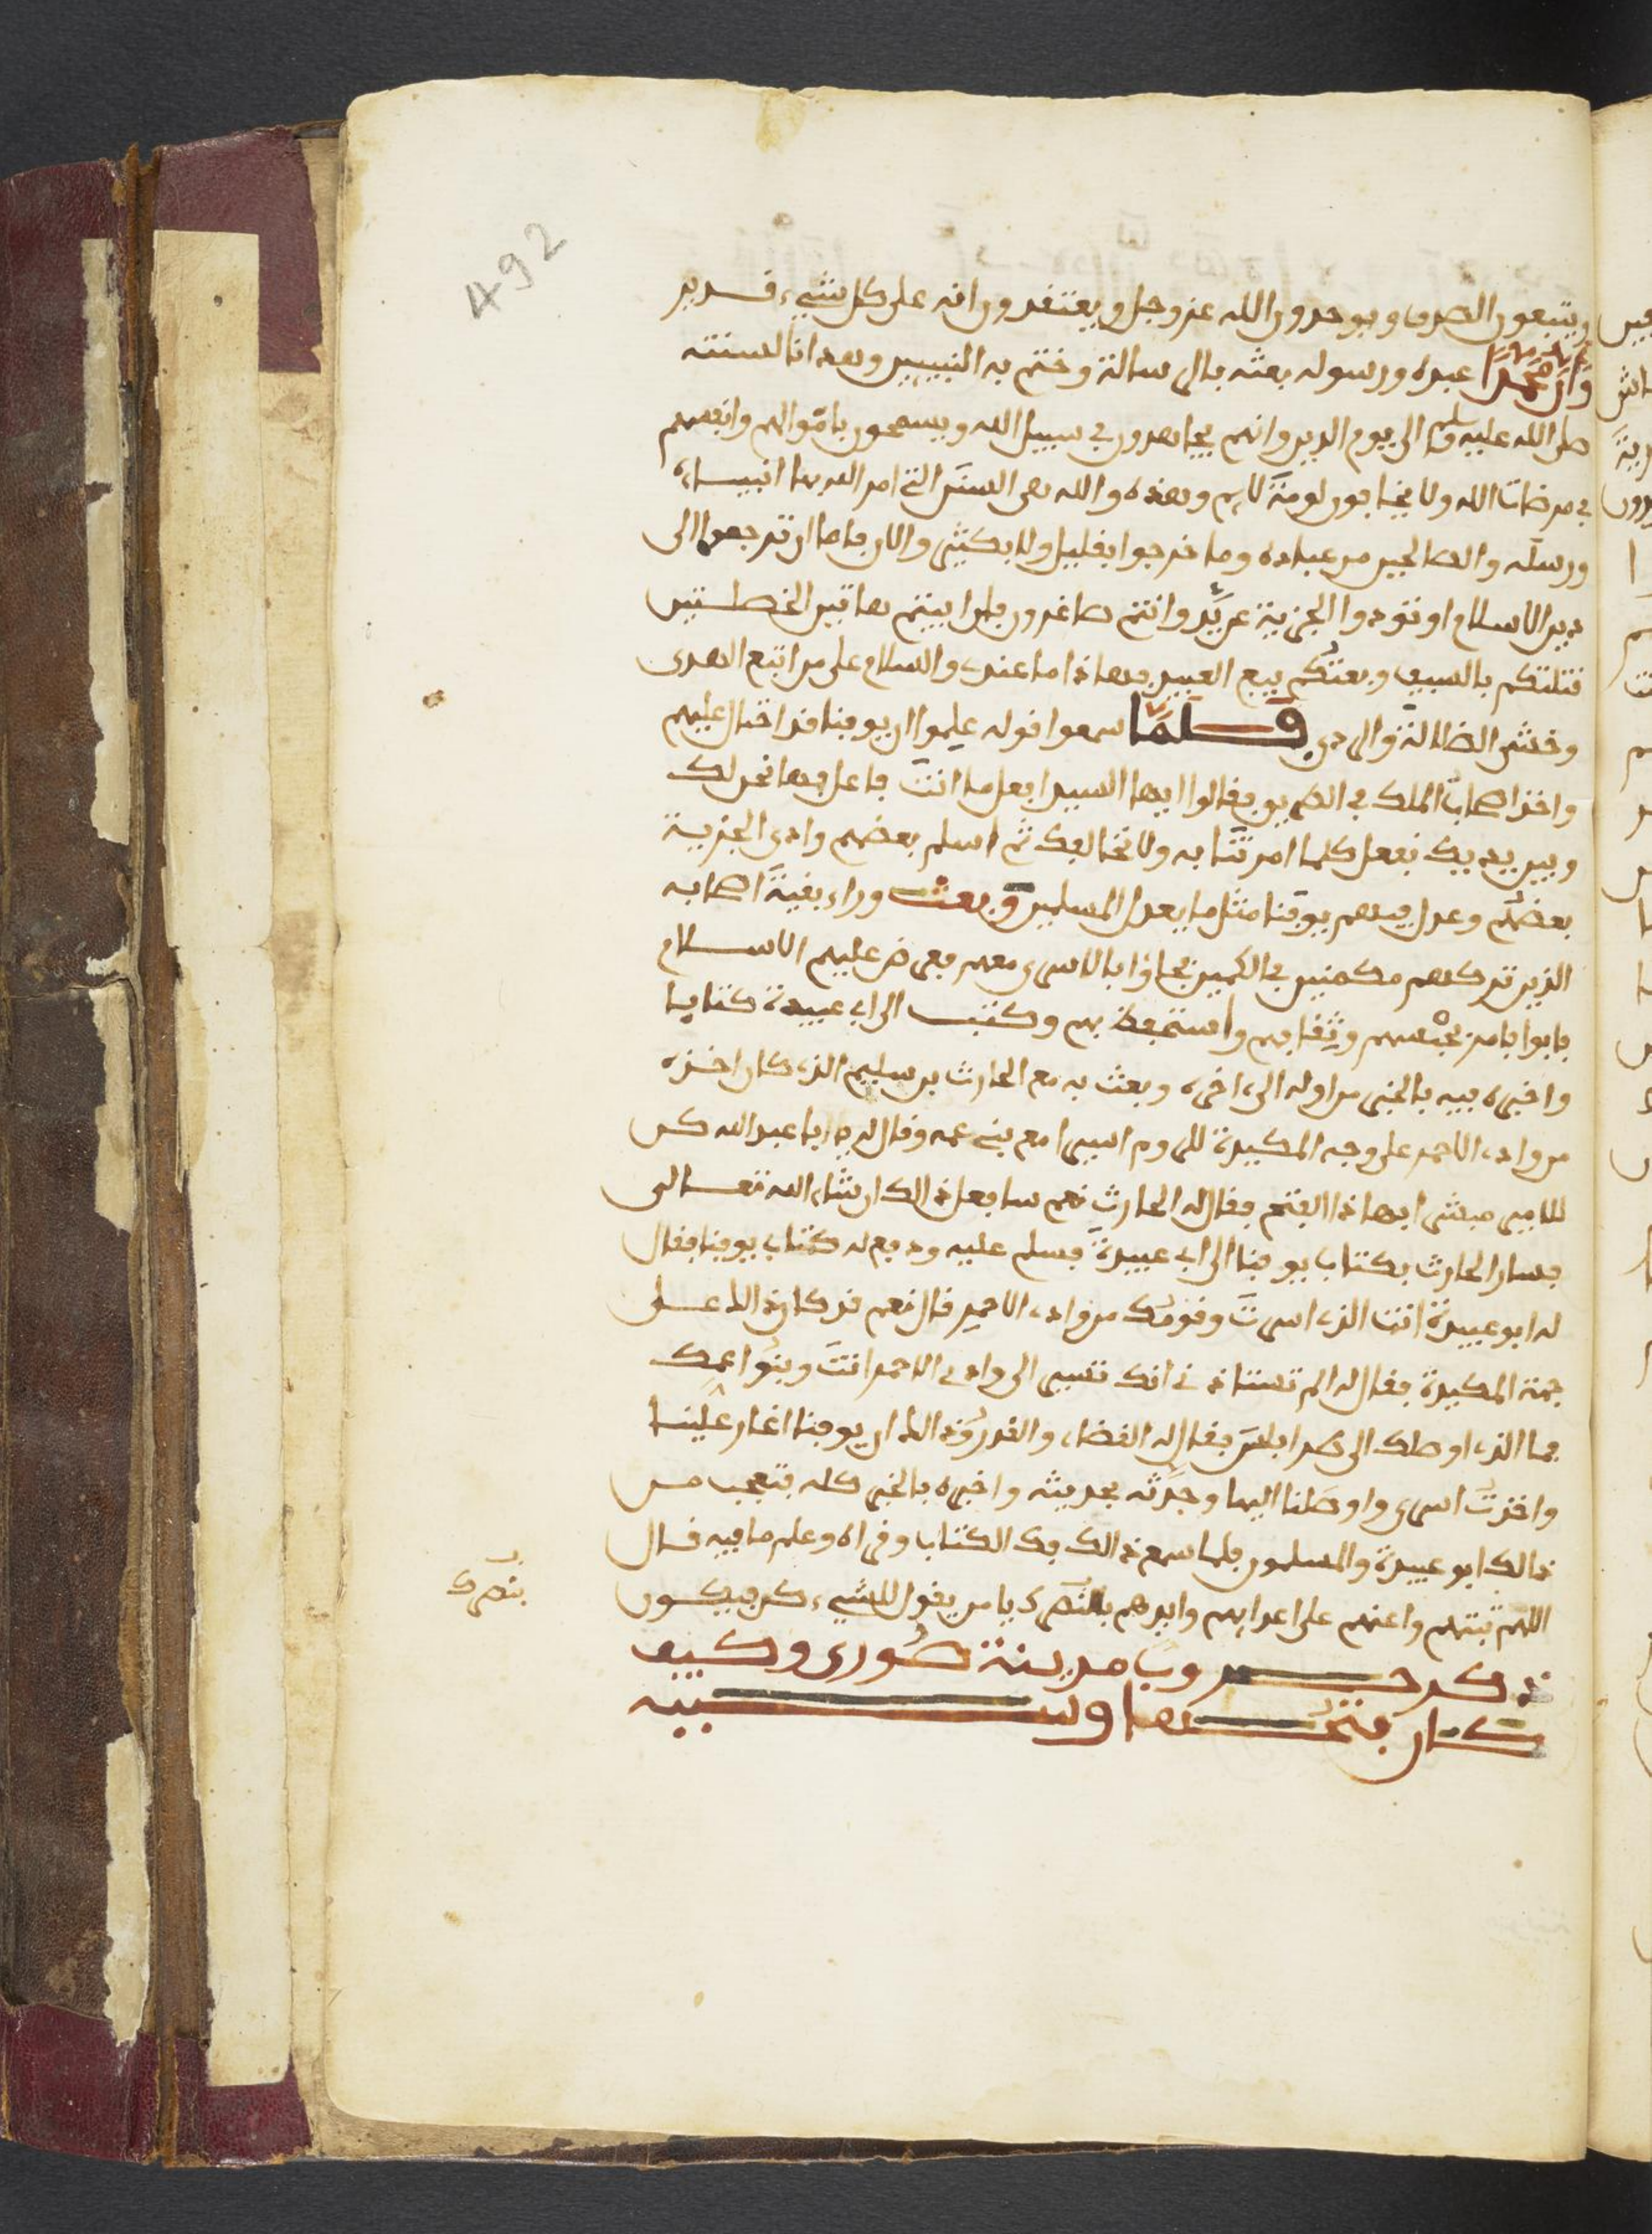 492
ويتبعون الصدق ويوحدون الله عز وجل ويعتقدون انه على كل شيء قدير
وَأنَّ مُحَمَّدًا عبده ورسوله بعثه بالرسالة وختم به النبيين وهدانا لسنته
صلى الله عليه وسلم الى يوم الدين وانهم يجاهدون في سبيل الله ويسمحون باموالهم وانفسهم
في مرضات الله ولا يخافون لومة لايم وهذه والله هي السنن التي امر الله بها انبياءه
ورسله والصالحين من عباده وما خرجوا بقليل ولا بكثير والان فاما ان ترجعوا الى
دين الاسلام او تودوا الجزية عن يد وانتم صاغرون فان ابيتم هاتين الخصلتين
قتلتكم بالسيف وبعتكم بيع العبيد فهاذا ما عندي والسلام على من اتبع الهدى
وخشي الضلالة والردى فلمَّا سمعوا قوله علموا ان يوقنا قد احتال عليهم
واخذ اصحاب الملك في الطريق فقالوا ايها السيد افعل ما انت فاعل فها نحن لك
وبين يديك نفعل كلما امرتنا به ولا نخالفك ثم اسلم بعضهم وادى الجزية
بعضهم وعدل فيهم يوقنا مثل ما يعدل المسلمين وبعث وراء بقية اصحابه
الذين تركهم مكمنين في الكمين فجاؤا بالاسرى معهم فعرض عليهم الاسلام
فابوا فامر بحبسهم وثقافهم واستحفظ بهم وكتب الى ابي عبيدة كتابا
واخبره فيه بالخبر من اوله الى اخره وبعث به مع الحارث بن سليم الذي كان اخذه
من وادي الاحمر على وجه المكيدة للروم اسيرا مع بني عمه وقال له يا عبد الله كن
للامير مبشرا بهاذا الفتح فقال له الحارث نعم سافعل ذالك ان شاء الله تعالى
فسار الحارث بكتاب يوقنا الى ابي عبيدة فسلم عليه ودفع له كتاب يوقنا فقال
له ابو عبيدة انت الذي اسرت وقومك من وادي الاحمر قال نعم قد كان ذالك على
جهة المكيدة فقال له الم تستاذني انك تسير الى وادي الاحمر انت وبنوا عمك
فما الذي اوصلك الى طرابلس فقال له القضاء والقدر وذالك ان يوقنا اغار علينا
واخذت اسرى واوصلنا اليها وحدثه بحديثه واخبره بالخبر كله فتعجب من
ذالك ابو عبيدة والمسلمون فلما سمع ذالك فك الكتاب وقراه وعلم ما فيه قال
اللهم ثبتهم واعنهم على اعدايهم وايدهم بالنصرك يا من يقول للشيء كن فيكون
بنصرك
ذكر حروب مدينة صُورى وكيف
كان فتحها وسببه